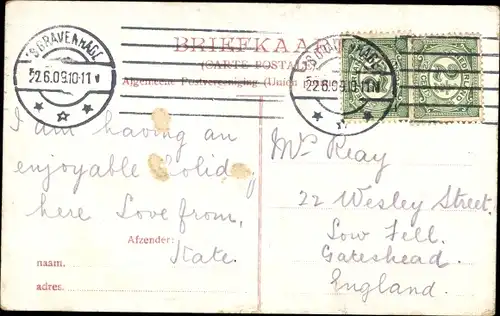 'SGRAVENHAGE
22.6.09.10-11V
BRIEFKAART
(CARTE POSTALE)
Algemeene Postvereeniging (Union
'SGRAVENHAGE
22.6.09.10-11V
I am having an
enjoyable holiday
here Love from,
Kate.
Afzender:
naam.
adres.
Mrs Reay
22 Wesley Street.
Low Fell.
Gateshead.
England.